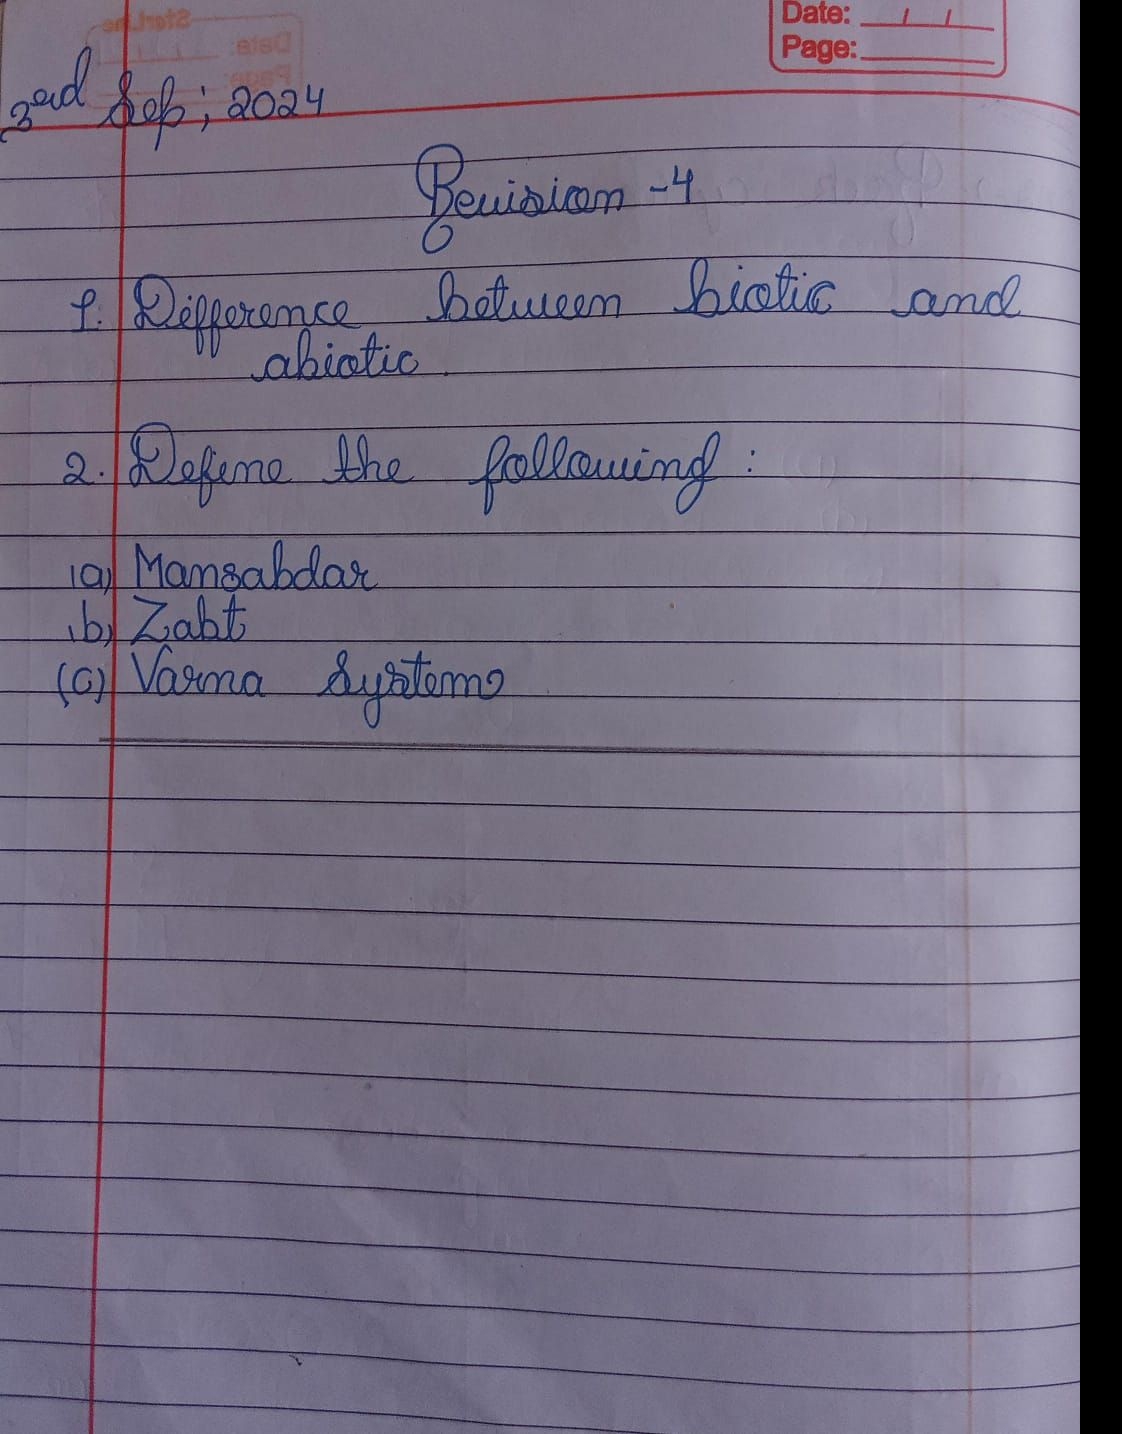 Date: / /
Page:
3rd Sep; 2024
Revision - 4
1. Difference between biotic and
abiotic.
2. Define the following:
(a) Mansabdar
(b) Zabt
(c) Varna System